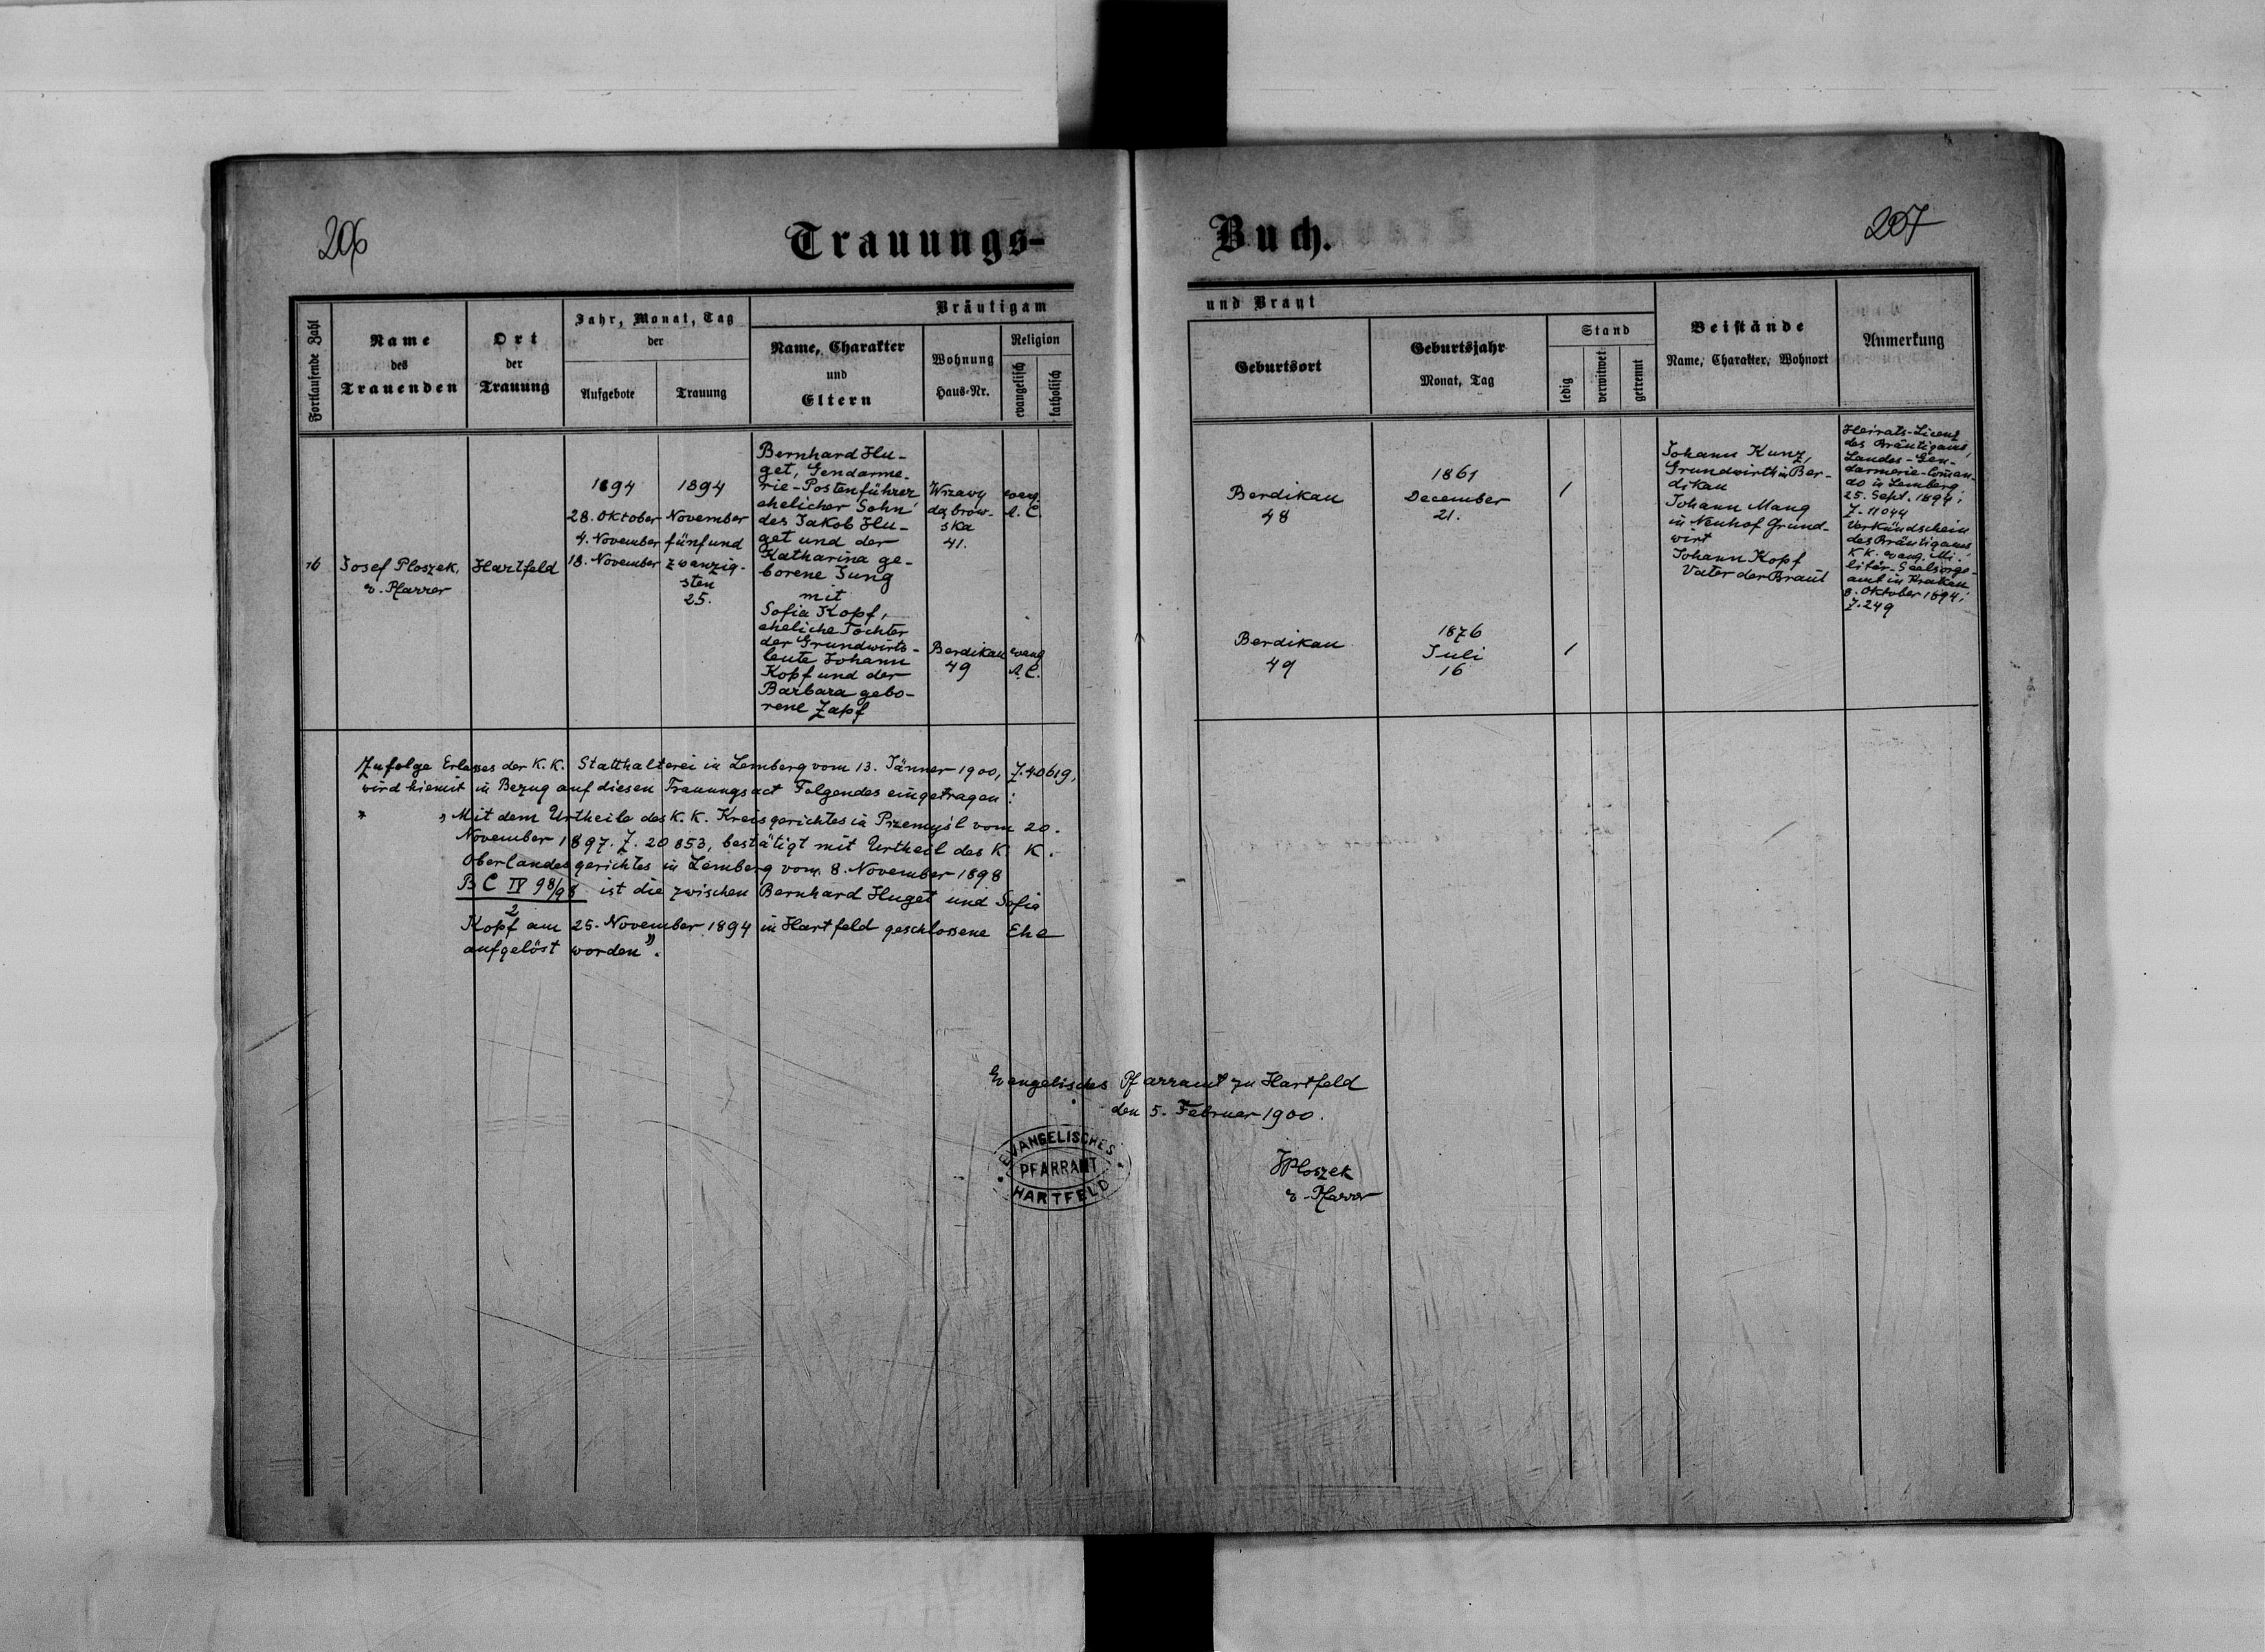 206
Trauungs-
Buch.
207
Fortlaufende Zahl
Name
des
Trauenden
Ort
der
Trauung
Jahr, Monat, Tag
der
Aufgebote
Trauung
Bräutigam
Name, Charakter
und
Eltern
Wohnung
Haus-Nr.
Religion
evangelisch
katholisch
und Braut
Geburtsort
Geburtsjahr
Monat, Tag
Stand
ledig
verwitwet
getrennt
Beistände
Name, Charakter, Wohnort
Anmerkung
16
Josef Ploszek,
e. Pfarrer
Hartfeld
1894
28. Oktober
4. November
18. November
1894
November
fünfund
zwanzig-
sten
25.
Bernhard Hu-
get, Gendarme-
rie-Postenführer
ehelicher Sohn
des Jakob Hu-
get und der
Katharina ge-
borene Jung
mit
Sofia Kopf,
eheliche Tochter
der Grundwirts-
leute Johann
Kopf und der
Barbara gebo-
rene Zapf
ska
41.
Berdikau
49
evang.
A. C.
evang
A. C.
Berdikau
48
Berdikau
49
1861
December
21.
1876
Juli
16
/
/
Johann Kunz,
Grundwirth in Ber-
dikau
Johann Mang
in Neuhof Grund-
wirt
Johann Kopf
Vater der Braut
Heirats-Licenz
des Bräutigams,
Landes-Gen-
darmerie-Comman-
do in Lemberg
25. Sept. 1894;
Z. 11044
Verkündschein
des Bräutigams
K. K. evang. Mi-
litär-Seelsorge-
amt in Krakau
8. Oktober 1894;
Z. 249
Zufolge Erlasses der K. K. Statthalterei in Lemberg vom 13. Jänner 1900, Z. 40619,
wird hiemit in Bezug auf diesen Trauungsact Folgendes eingetragen:
* „Mit dem Urtheile des K. K. Kreisgerichtes in Przemyśl vom 20.
November 1897. Z. 20853, bestätigt mit Urtheil des K. K.
Oberlandesgerichtes in Lemberg vom 8. November 1898
B C IV 98/98 ist die zwischen Bernhard Huget und Sofia
2
Kopf am 25. November 1894 in Hartfeld geschlossene Ehe
aufgelöst worden".
Evangelisches Pfarramt zu Hartfeld
den 5. Februar 1900.
EVANGELISCHES
PFARRAMT
HARTFELD
JPloszek
e. Pfarrer